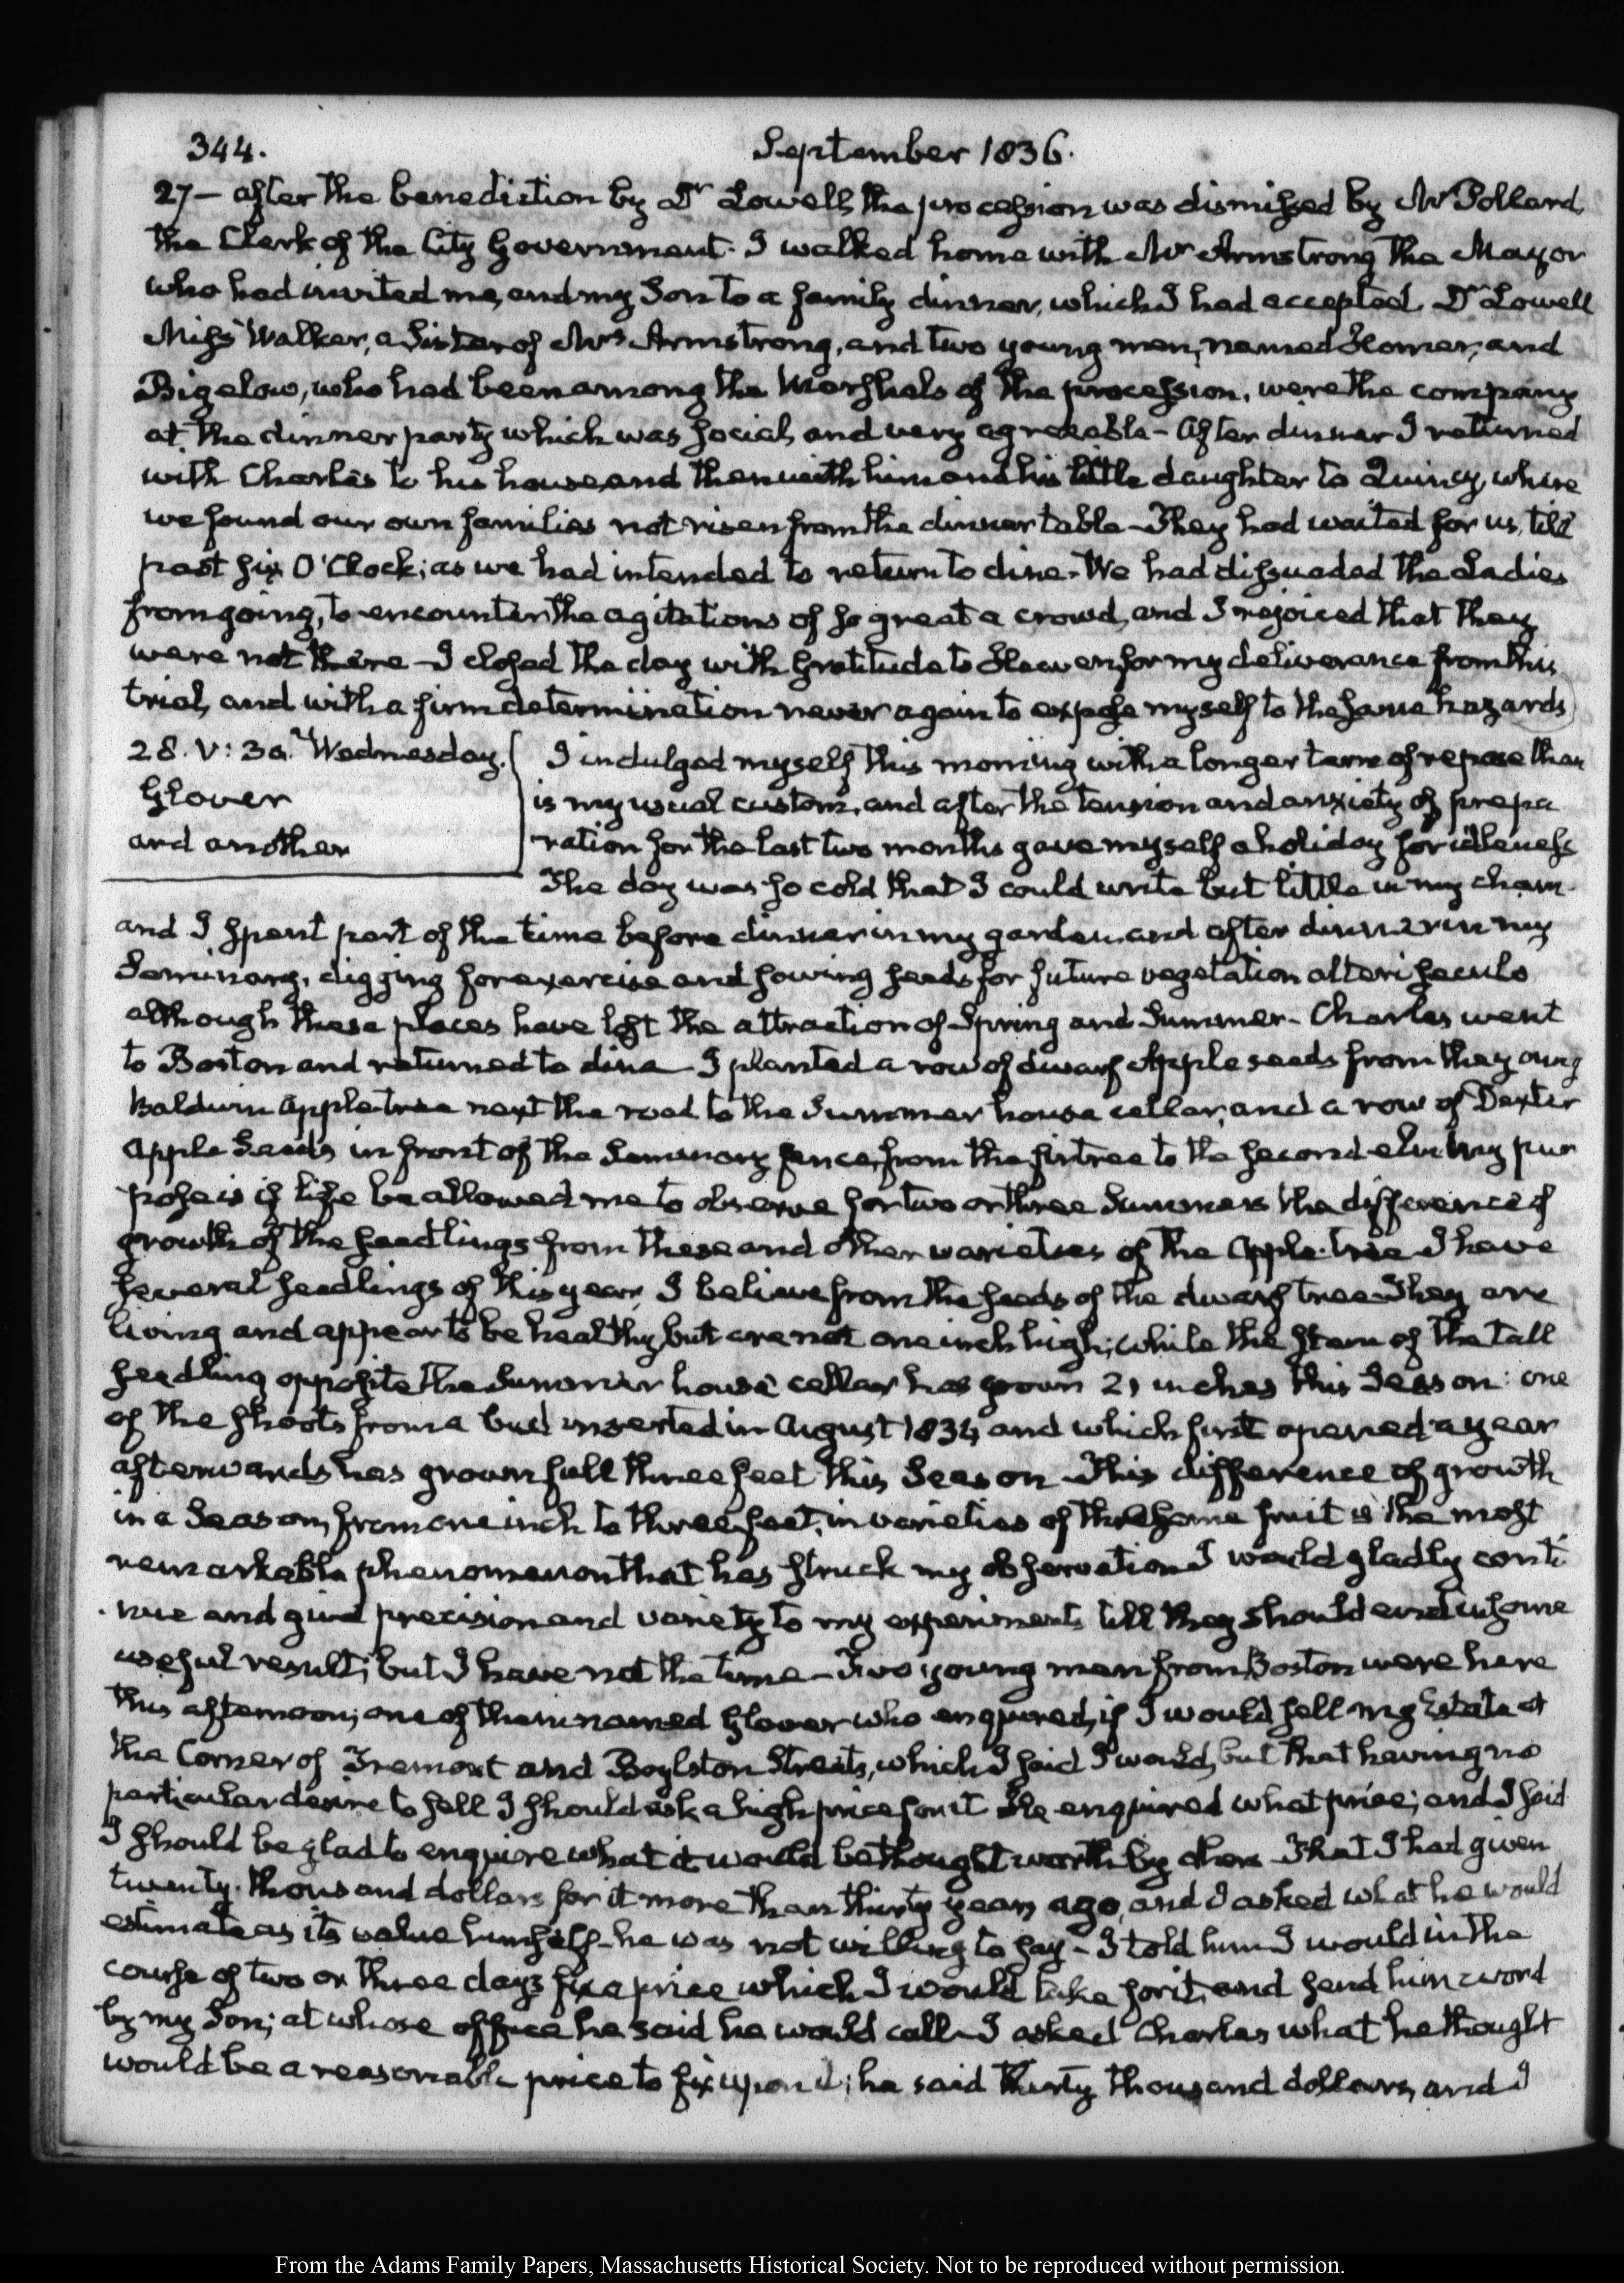 344.
September 1836.
27 — after the benediction by Dr Lowell, the procession was dismissed by Mr Pollard,
the Clerk of the City Government. I walked home with Mr Armstrong the Mayor
who had invited me, and my Son to a family dinner, which I had accepted. Dr Lowell
Miss Walker, a Sister of Mrs Armstrong, and two young men, named Homer, and
Bigelow, who had been among the Marshals of the procession, were the company
at the dinner party which was social, and very agreeable — After dinner I returned
with Charles to his house, and then with him and his little daughter to Quincy, where
we found our own families not risen from the dinner table — They had waited for us, till
past six O'Clock; as we had intended to return to dine. We had dissuaded the Ladies
from going, to encounter the agitations of so great a crowd, and I rejoiced that they
were not there — I closed the day with Gratitude to Heaven for my deliverance from this
trial, and with a firm determination never again to expose myself to the same hazards
28. V: 30. Wednesday.
Glover
and another
I indulged myself this morning with a longer term of repose than
is my usual custom, and after the tension and anxiety of prepa
ration for the last two months gave myself a holiday for idleness
The day was so cold that I could write but little in my cham.
and I spent part of the time before dinner in my garden, and after dinner in my
Seminary, digging for exercise and sowing seeds for future vegetation alteri seculo
although these places have lost the attraction of Spring and Summer — Charles went
to Boston and returned to dine — I planted a row of dwarf Apple seeds from the young
Baldwin apple-tree next the road to the Summer house cellar, and a row of Dexter
Apple Seeds in front of the Seminary fence, from the firtree to the second elm My pur
pose is if life be allowed me to observe for two or three Summers the difference of
growth of the seedlings from these and other varieties of the Apple-tree I have
several seedlings of this year, I believe from the seeds of the dwarf tree — They are
living and appear to be healthy, but are not one inch high; while the stem of the tall
seedling opposite the Summer house cellar has grown 21 inches this Season: one
of the shoots from a bud inserted in August 1834 and which first opened a year
afterwards has grown full three feet this Season — This difference of growth
in a Season, from one inch to three feet, in varieties of the same fruit is the most
remarkable phenomenon that has struck my observation I would gladly conti
nue and give precision and variety to my experiments till they should end in some
useful result; but I have not the time — Two young men from Boston were here
this afternoon; one of them named Glover who enquired, if I would sell my Estate at
the Corner of Tremont and Boylston Streets, which I said I would, but that having no
particular desire to sell I should ask a high price for it He enquired what price; and I said
I should be glad to enquire what it would be thought worth by That I had given
twenty-thousand dollars for it more than thirty years ago, and I asked what he would
estimate as its value himself — he was not willing to say — I told him I would in the
course of two or three days fix a price which I would take for it, and send him word
by my Son; at whose office he said he would call — I asked Charles what he thought
would be a reasonable price to fix upon it; he said thirty thousand dollars, and I
From the Adams Family Papers, Massachusetts Historical Society. Not to be reproduced without permission.